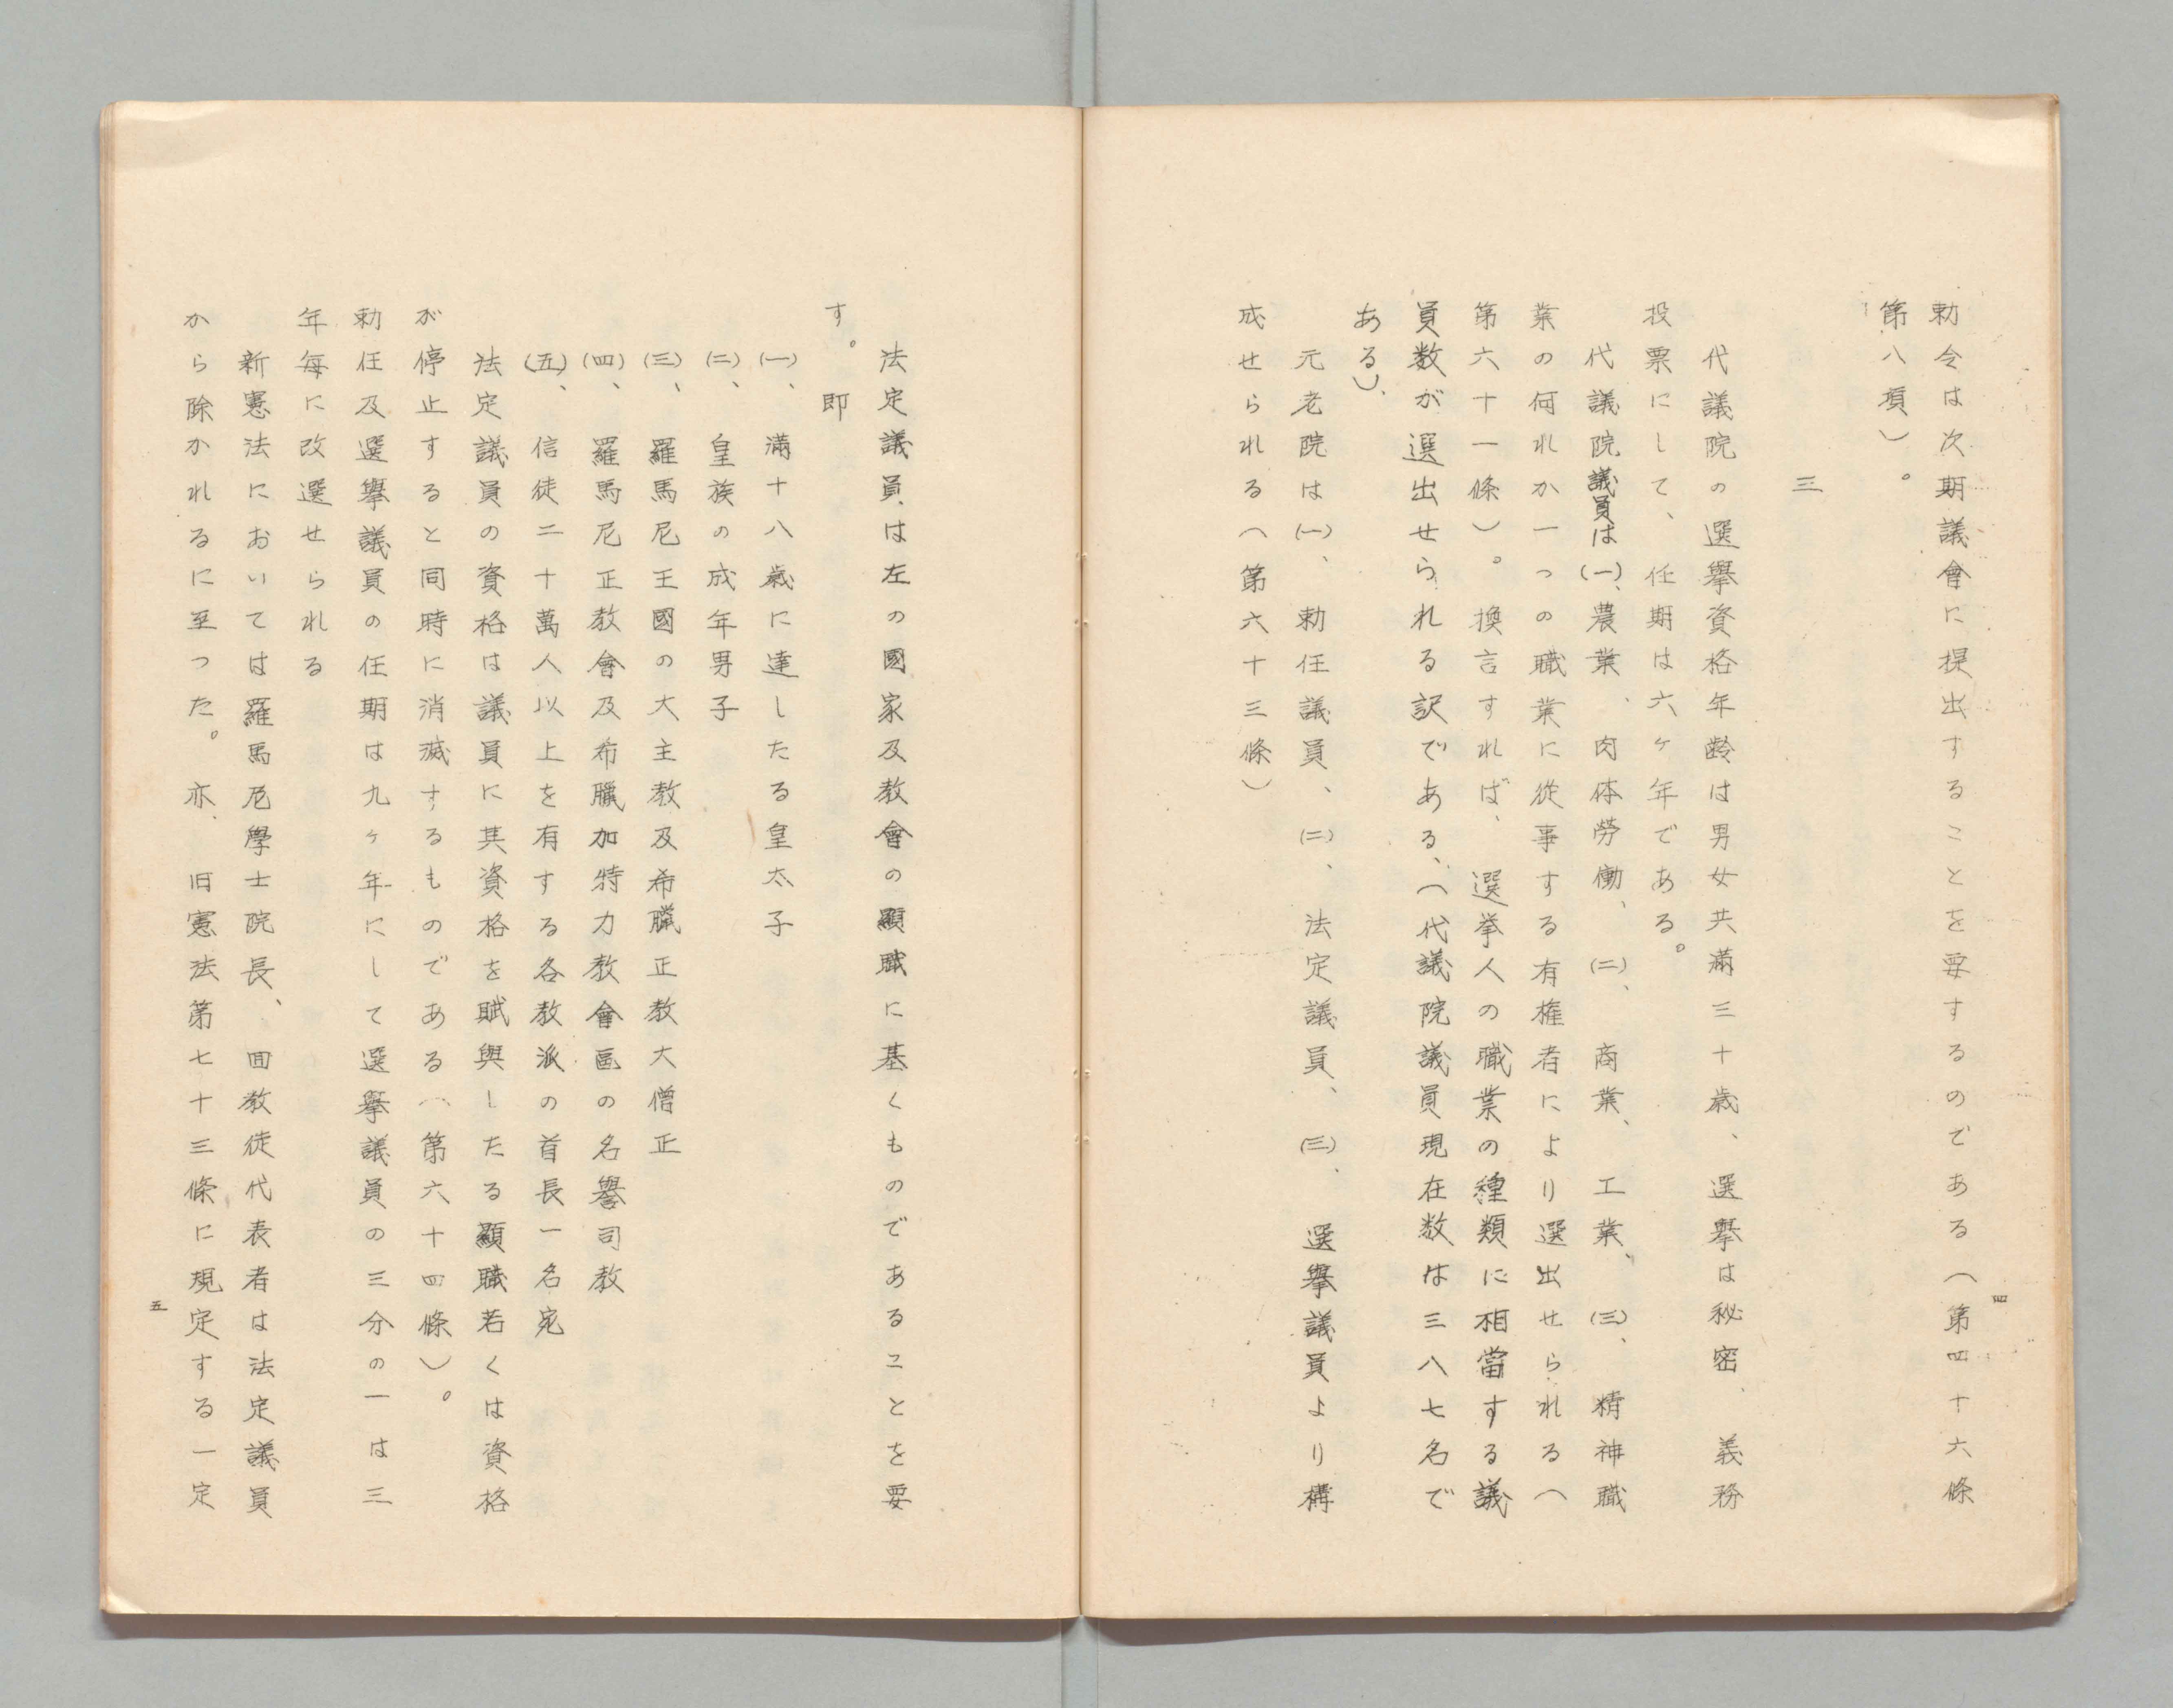 勅令は次期議會に提出することを要するのである（第四十六條
第八項）。
三
代議院の選擧資格年齢は男女共滿三十歳、選擧は秘密、義務
投票にして、任期は六ヶ年である。
代議院議員は(一)、農業、肉体勞働、(二)、商業、工業、(三)、精神職
業の何れか一つの職業に從事する有権者により選出せられる（
第六十一條）。換言すれば、選挙人の職業の種類に相當する議
員数が選出せられる訳である、（代議院議員現在数は三八七名で
ある）、
元老院は(一)、勅任議員、(二)、法定議員、(三)、選擧議員より構
成せられる（第六十三條）
四
法定議員は左の國家及教會の顯職に基くものであることを要
す。即
(一)、滿十八歳に達したる皇太子
(二)、皇族の成年男子
(三)、羅馬尼王國の大主教及希臘正教大僧正
(四)、羅馬尼正教會及希臘加特力教會區の名譽司教
(五)、信徒二十萬人以上を有する各教派の首長一名宛
法定議員の資格は議員に其資格を賦與したる顯職若くは資格
が停止すると同時に消滅するものである（第六十四條）。
勅任及選擧議員の任期は九ヶ年にして選擧議員の三分の一は三
年每に改選せられる
新憲法においては羅馬尼學士院長、囬教徒代表者は法定議員
から除かれるに至った。亦、旧憲法第七十三條に規定する一定
五